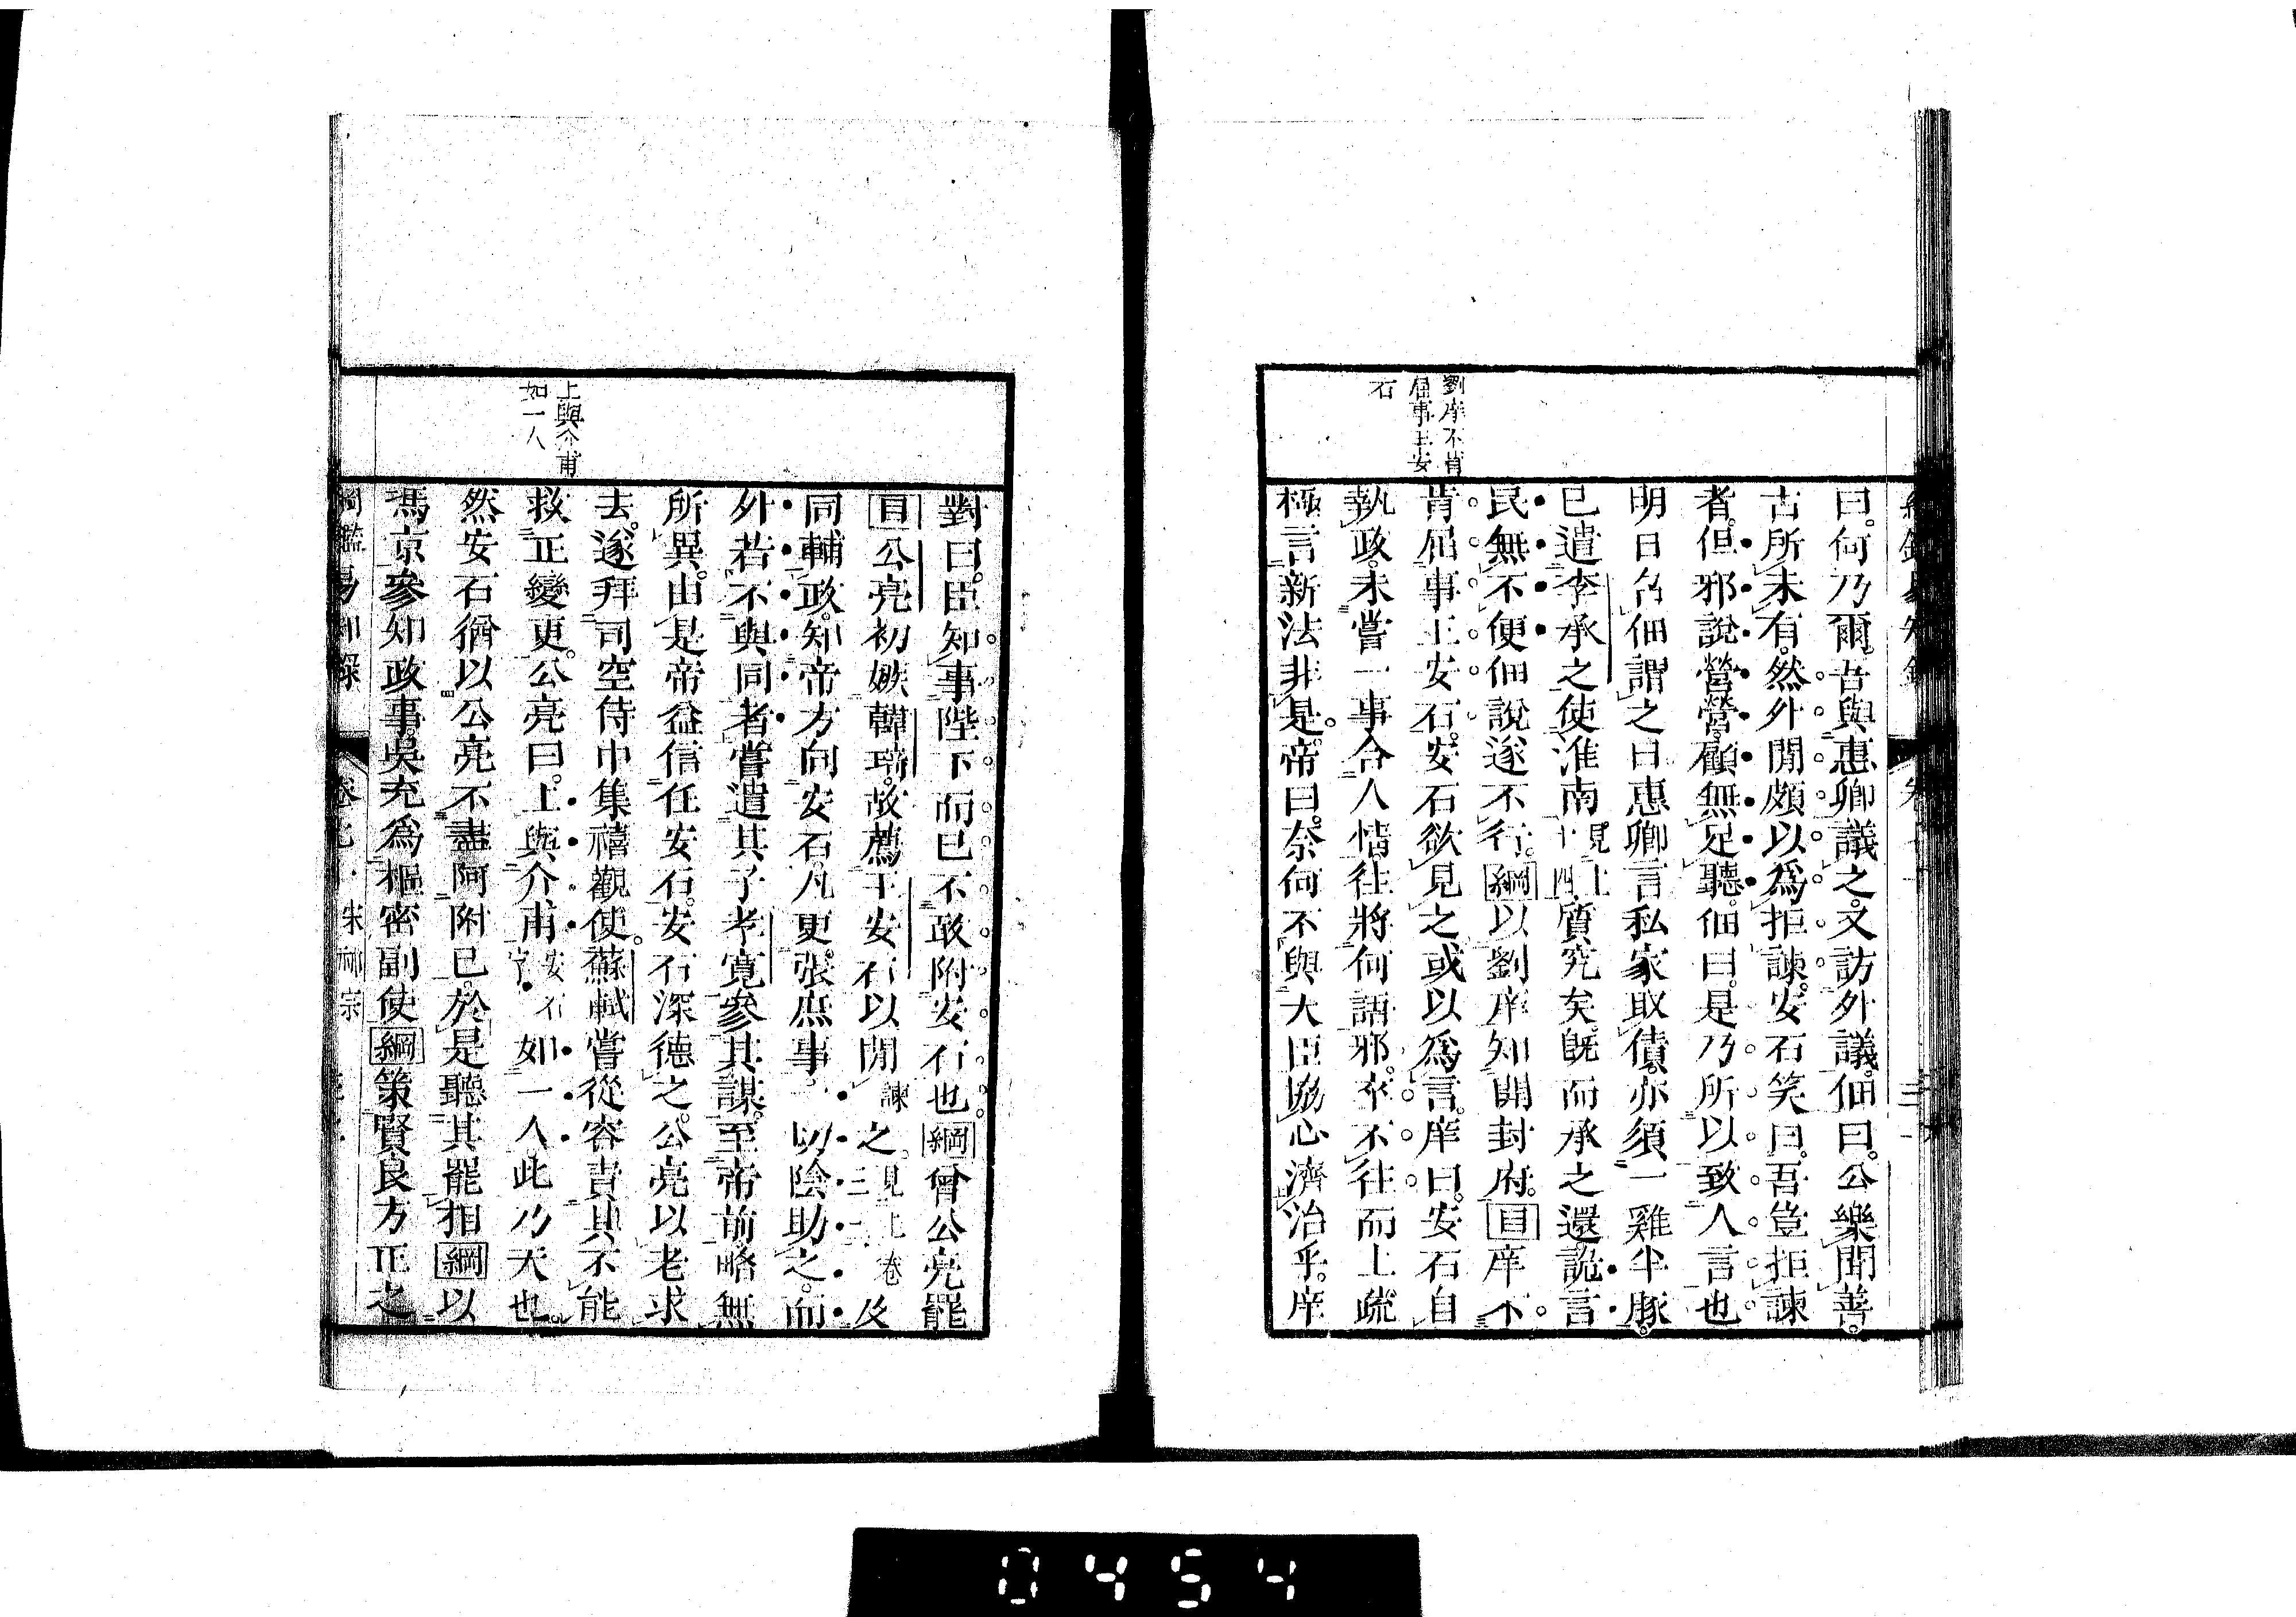 劉庠不肯
屈事王安
石
曰。何乃爾。吾與惠卿議之。又訪外議。佃曰。公樂聞善。
古所未有。然外閒頗以爲拒諫。安石笑曰。吾豈拒諫
者。但邪說營營。顧無足聽。佃曰。是乃所以致人言也
明日召佃謂之曰惠卿言私家取債。亦須一雞半豚。
已遣李承之使淮南。見上十四質究矣。旣而承之還。詭言
民無不便佃說遂不行。綱以劉庠知開封府。目庠不
肯屈事王安石。安石欲見之或以爲言。庠曰。安石自
執政。未嘗一事合人情。往將何語邪。卒不往而上疏
極言新法非是。帝曰。奈何不與大臣協心濟治乎。庠
上與介甫
如一人
對曰。臣知事陛下而已不敢附安石也。綱曾公亮罷
目公亮初嫉韓琦。故薦王安石以閒諫之。見上卷二三及
同輔政。知帝方向安石。凡更張庶事一切陰助之。而
外若不與同者嘗遣其子孝寬參其謀。至帝前略無
所異。由是帝益信任安石。安石深德之。公亮以老求
去。遂拜司空侍中集禧觀使。蘇軾嘗從容責其不能
救正變更。公亮曰。上與介甫安石字如一人。此乃天也。
然安石猶以公亮不盡阿附已。於是聽其罷相綱以
馮京參知政事。吳充爲樞密副使綱策賢良方正之
綱鑑易知錄 卷七 宋神宗